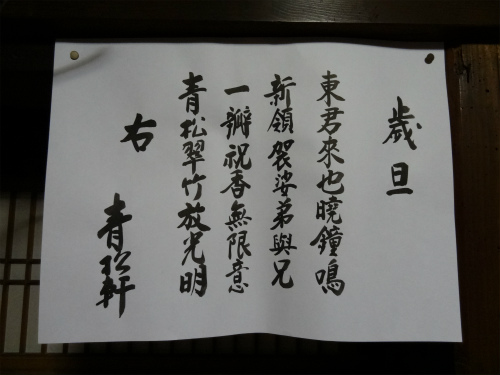 歲旦
東君來也曉鐘鳴
新領袈娑弟與兄
一瓣祝香無限意
青松翠竹放光明
右
青松軒